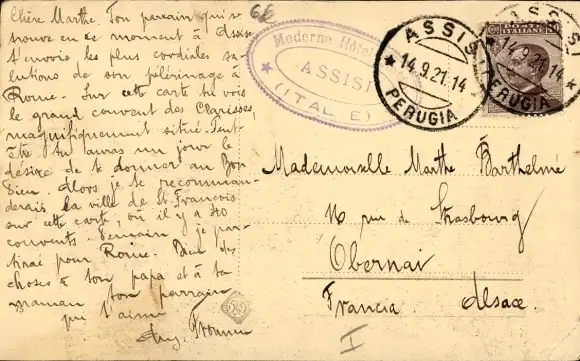 Chère Marthe. Ton parrain qui se
trouve en ce moment à Assise
t'envoie les plus cordiales sa-
lutions de son pèlerinage à
Rome. Sur cette carte tu vois
le grand couvent des Clarisses,
magnifiquement situé. Peut-
être tu auras un jour le
désire de te donner au Bon
Dieu. Alors je te recomman-
derais la ville de St. François
sur cette carte, où il y a 40
couvents. Demain je par-
tirai pour Rome. Bien des
choses à ton papa et à ta
maman ton parrain
qui t'aime
Moderne Hôtel
ASSISI
(ITALIE)
ASSISI
14.9.21.14
PERUGIA
ASSISI
14.9.21.14
PERUGIA
ITALIANE
Mademoiselle Marthe Barthelmé
16 rue de Strasbourg
Obernai
Francia. Alsace.
I